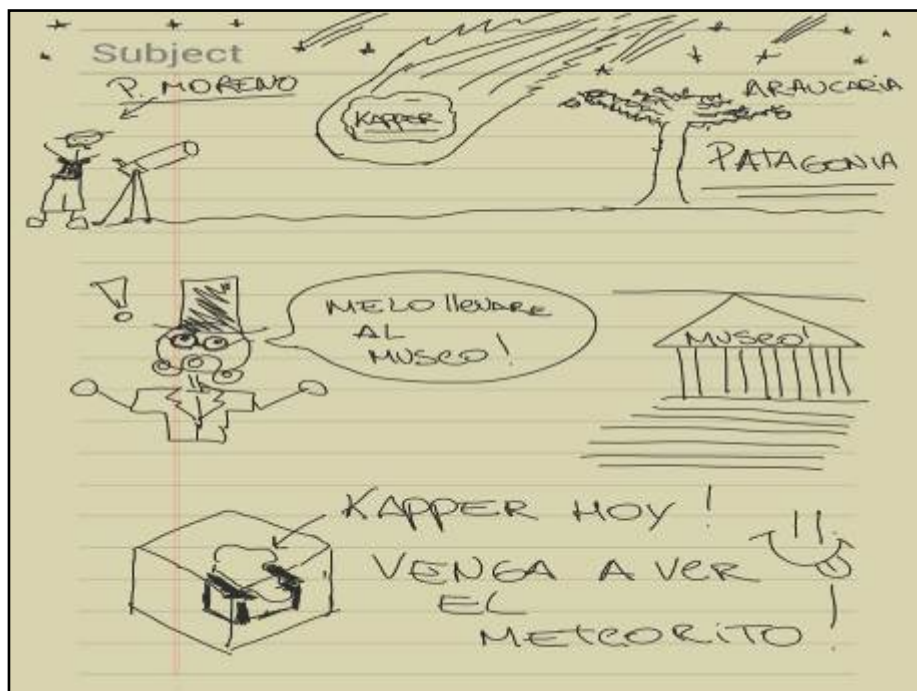 Subject
P. MORENO
KAPPER
ARAUCARIA
PATAGONIA
MELO llevare
AL
MUSEO!
MUSEO!
KAPPER HOY!
VENGA A VER
EL
METEORITO!